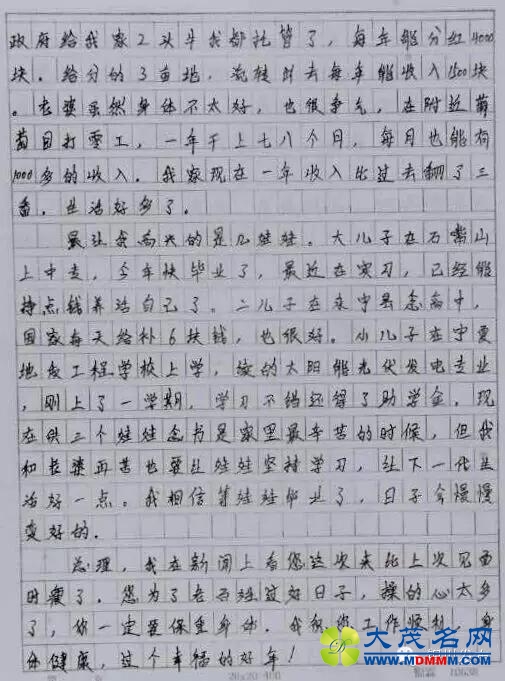 政府给我家2头牛我都托管了，每年能分红4000
块。给分的3亩地，流转出去每年能收入1500块
。老婆虽然身体不太好，也很争气，在附近葡
萄园打零工，一年干上七八个月，每月也能有
1000多的收入。我家现在一年收入比过去翻了三
番，生活好多了。
最让我高兴的是几娃娃。大儿子在石嘴山
上中专，今年快毕业了，最近在实习，已经能
挣点钱养活自己了。二儿子在永宁县念高中，
国家每天给补6块钱，也很好。小儿子在宁夏
地质工程学校上学，读的太阳能光伏发电专业
，刚上了一学期，学习不错还得了助学金。现
在供三个娃娃念书是家里最辛苦的时候，但我
和老婆再苦也要让娃娃坚持学习，让下一代生
活好一点。我相信等娃娃毕业了，日子会慢慢
变好的。
总理，我在新闻上看您这次来比上次见面
时瘦了。您为了老百姓过好日子，操的心太多
了，你一定要保重身体。我祝您工作顺利，身
体健康，过个幸福的好年！
大茂名网
WWW.MDMMM.COM
20×20=400